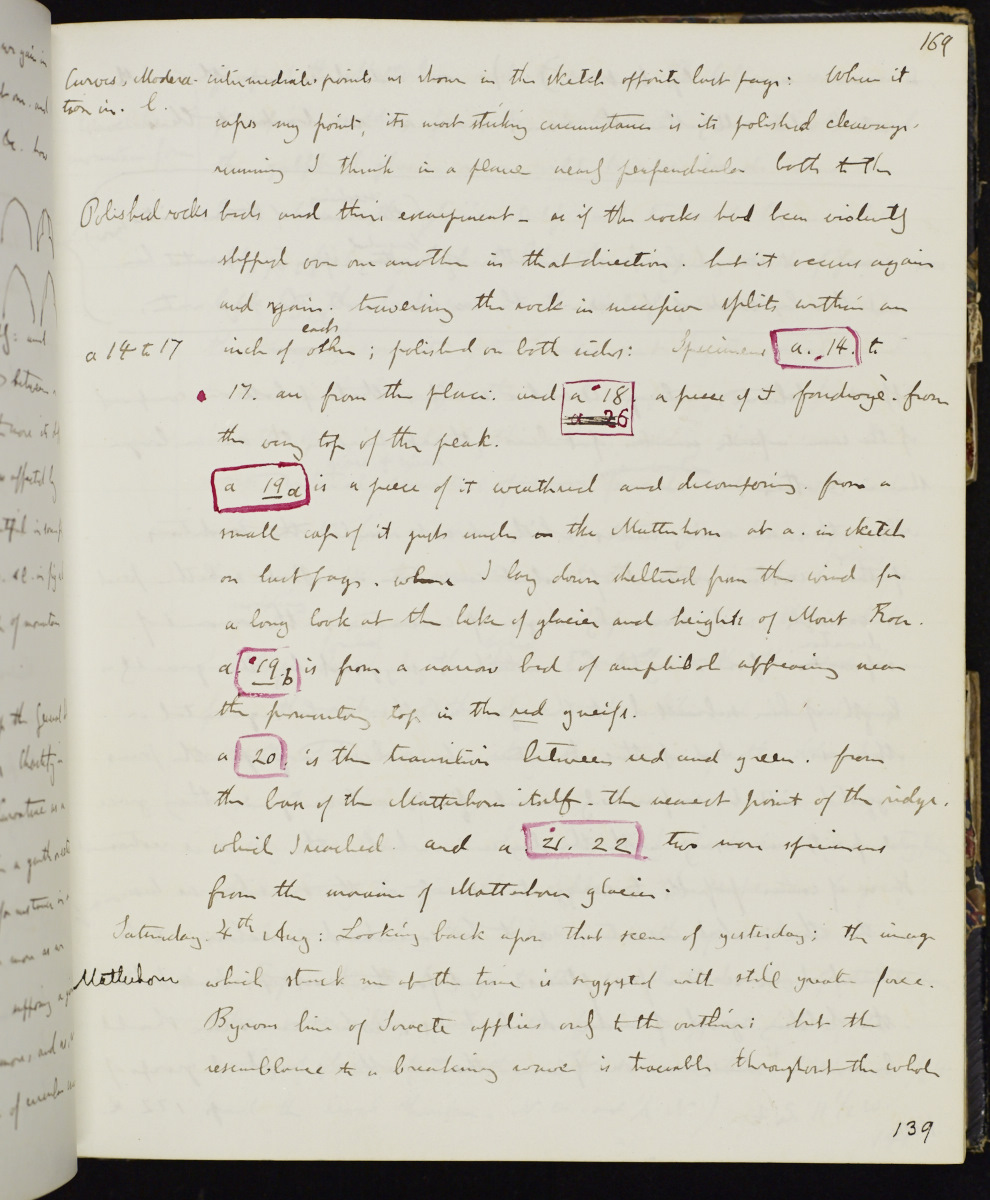 169
Curves. Modera- intermediate points as shown in the sketch opposite last page: When it
tion in. C.
caps my point, its most striking circumstance is its polished cleavage.
running I think in a plane nearly perpendicular both to the
Polished rocks beds and their escarpment - as if the rocks had been violently
slipped over one another in that direction. but it occurs again
and again. traversing the rock in successive splits within an
a 14 to 17 inch of each other; polished on both sides: Specimens a. 14. to
17. are from the place. and a 18 a piece of it foudroyé. from
a 26
the very top of the peak.
a 19 a is a piece of it weathered and decomposing. from a
small cap of it just under the Matterhorn at a. in sketch
on last page. where I lay down sheltered from the wind for
a long look at the lake of glacier and heights of Mont Rosa.
a 19.b is from a narrow bed of amphibole appearing near
the promontory top in the red gneiss.
a 20. is the transition between red and green. from
the base of the Matterhorn itself. the nearest point of the ridge.
which I reached. and a. 21. 22 two more specimens
from the moraine of Matterhorn glacier.
Saturday. 4th Aug: Looking back upon that scene of yesterday; the image
Matterhorn which struck me at the time is suggested with still greater force.
Byrons line of Soracte applies only to the outline: but the
resemblance to a breaking wave is traceable throughout the whole
139